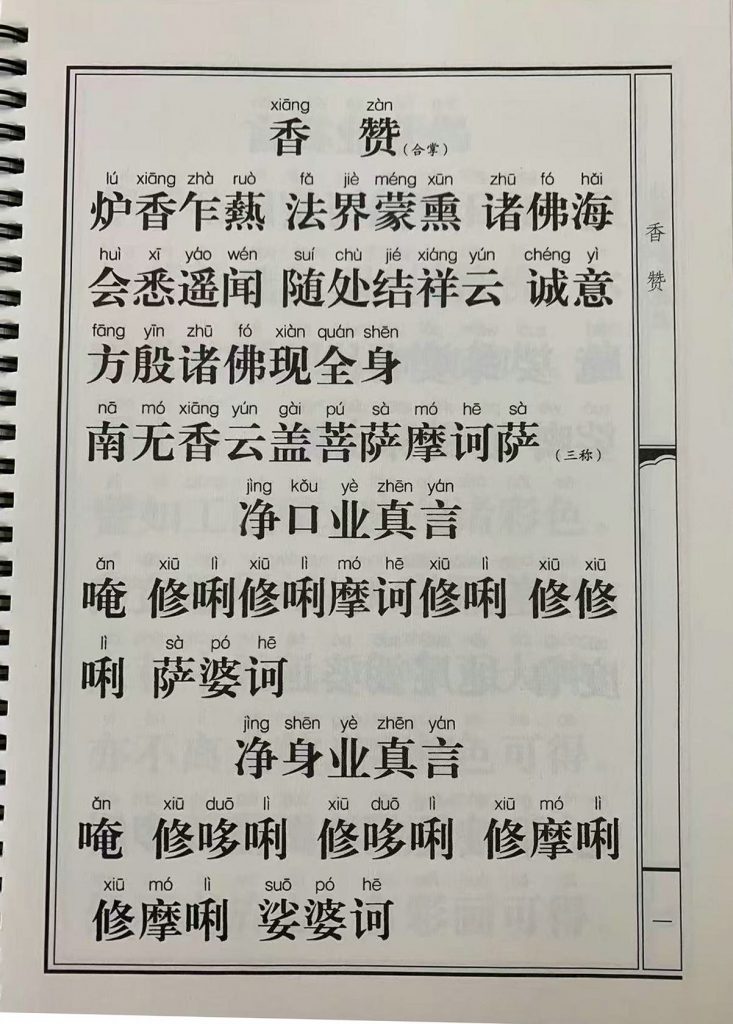 xiāng zàn
香 赞(合掌)
lú xiāng zhà ruò fǎ jiè méng xūn zhū fó hǎi
炉香乍爇 法界蒙熏 诸佛海
huì xī yáo wén suí chù jié xiáng yún chéng yì
会悉遥闻 随处结祥云 诚意
fāng yīn zhū fó xiàn quán shēn
方殷诸佛现全身
nā mó xiāng yún gài pú sà mó hē sà
南无香云盖菩萨摩诃萨(三称)
jìng kǒu yè zhēn yán
净口业真言
ǎn xiū lì xiū lì mó hē xiū lì xiū xiū
唵 修唎修唎摩诃修唎 修修
lì sà pó hē
唎 萨婆诃
jìng shēn yè zhēn yán
净身业真言
ǎn xiū duō lì xiū duō lì xiū mó lì
唵 修哆唎 修哆唎 修摩唎
xiū mó lì suō pó hē
修摩唎 娑婆诃
香赞
一